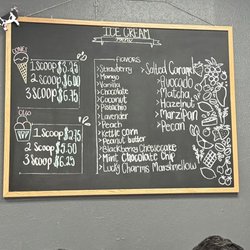 ICE CREAM
MENU
CONES
1 SCOOP $3.75
2 SCOOP $6.00
3 SCOOP $6.75
CUPS
1 SCOOP $2.75
2 SCOOP $5.50
3 SCOOP $6.25
FLAVORS
>Strawberry
>Mango
>Vanilla
>Chocolate
>Coconut
>Pistachio
>Lavender
>Peach
>Kettle Corn
>Peanut butter
>Blackberry Cheesecake
>Mint Chocolate Chip
>Lucky Charms Marshmellow
>Salted Caramel
>Avocado
>Matcha
>Hazelnut
>Marzipan
>Pecan